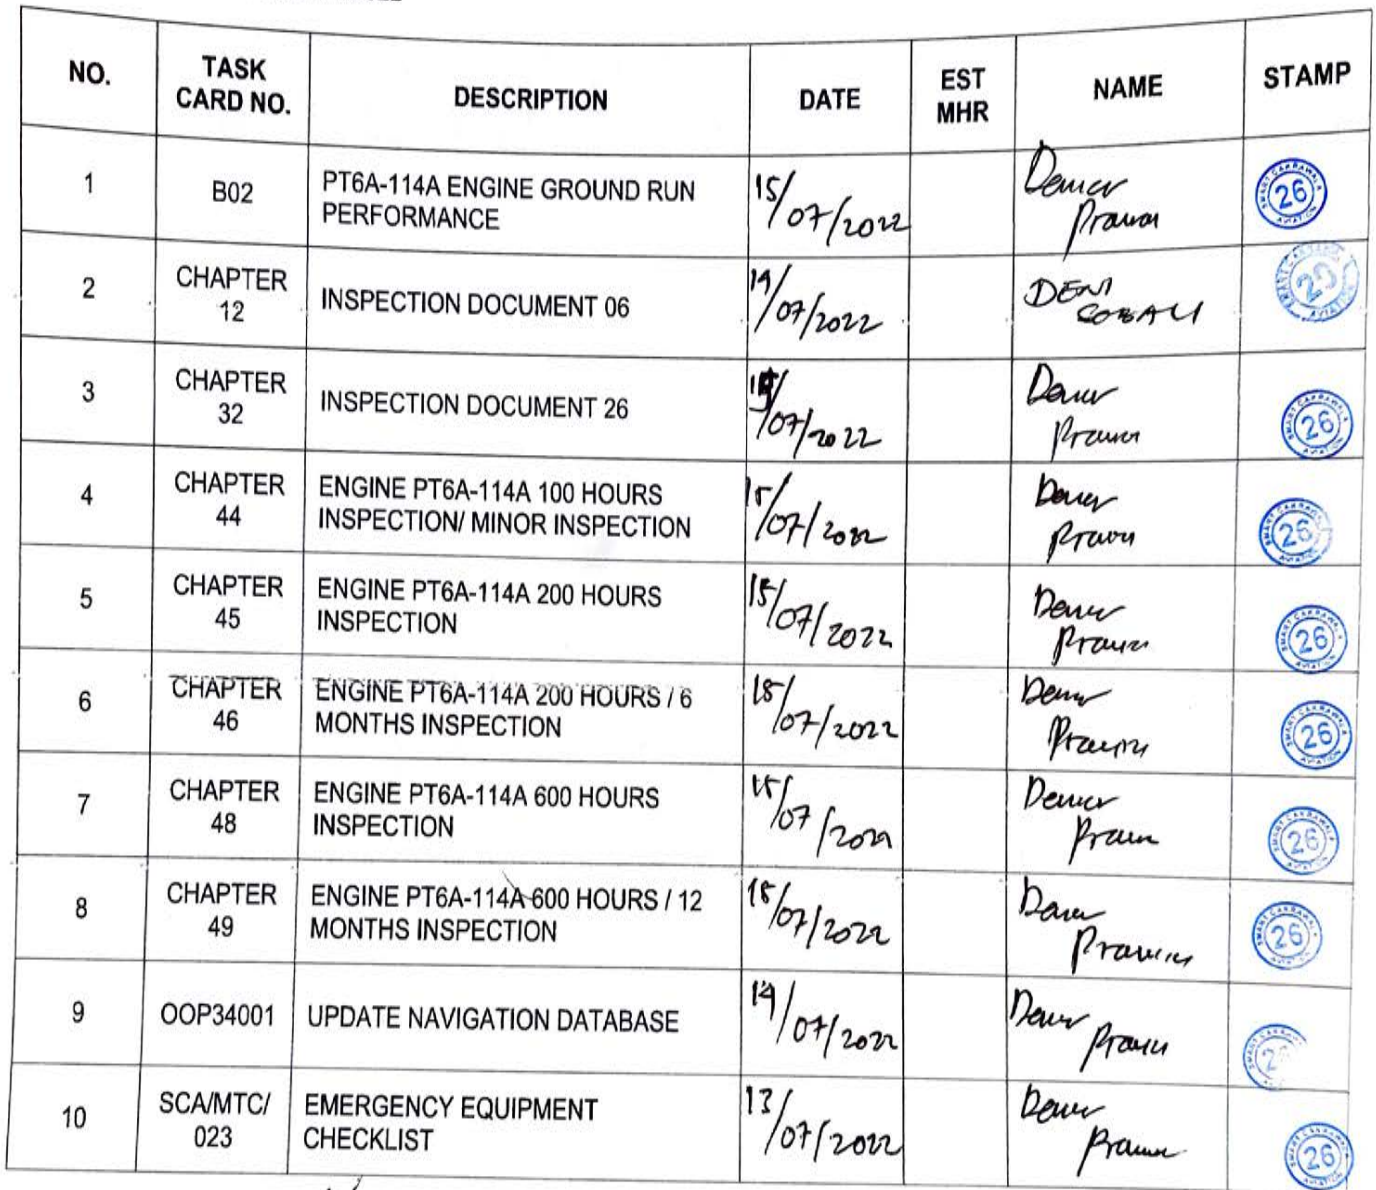 NO. TASK CARD NO. DESCRIPTION DATE EST MHR NAME STAMP
1 B02 PT6A-114A ENGINE GROUND RUN PERFORMANCE 15/07/2022 SMART CAKRAWALA AVIATION 26
2 CHAPTER 12 INSPECTION DOCUMENT 06 14/07/2022 DENI SMART CAKRAWALA AVIATION
3 CHAPTER 32 INSPECTION DOCUMENT 26 /07/2022 SMART CAKRAWALA AVIATION 26
4 CHAPTER 44 ENGINE PT6A-114A 100 HOURS INSPECTION/ MINOR INSPECTION 15/07/2022 SMART CAKRAWALA AVIATION 26
5 CHAPTER 45 ENGINE PT6A-114A 200 HOURS INSPECTION 15/07/2022 SMART CAKRAWALA AVIATION 26
6 CHAPTER 46 ENGINE PT6A-114A 200 HOURS / 6 MONTHS INSPECTION 15/07/2022 SMART CAKRAWALA AVIATION 26
7 CHAPTER 48 ENGINE PT6A-114A 600 HOURS INSPECTION 15/07/2022 SMART CAKRAWALA AVIATION 26
8 CHAPTER 49 ENGINE PT6A-114A 600 HOURS / 12 MONTHS INSPECTION 15/07/2022 SMART CAKRAWALA AVIATION 26
9 OOP34001 UPDATE NAVIGATION DATABASE 14/07/2022
10 SCA/MTC/ 023 EMERGENCY EQUIPMENT CHECKLIST 13/07/2022 SMART CAKRAWALA AVIATION 26